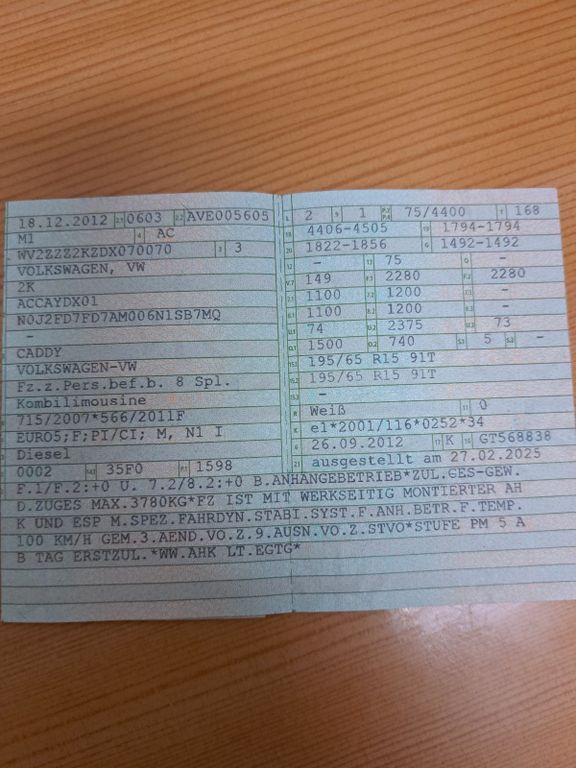 18.12.2012 2.1 0603 2.2 AVE005605
M1 4 AC
WV2ZZZ2KZDX070070 3 3
VOLKSWAGEN, VW
2K
ACCAYDX01
N0J2FD7FD7AM006N1SB7MQ
-
CADDY
VOLKSWAGEN-VW
Fz.z.Pers.bef.b. 8 Spl.
Kombilimousine
715/2007*566/2011F
EURO5;F;PI/CI; M, N1 I
Diesel
0002 14.1 35F0 P.1 1598
L 2 9 1 P.2 P.4 75/4400 T 168
18 4406-4505 19 1794-1794
20 1822-1856 G 1492-1492
12 - 13 75 Q -
V.7 149 F.1 2280 F.2 2280
7.1 1100 7.2 1200 7.3 -
8.1 1100 8.2 1200 8.3 -
U.1 74 U.2 2375 U.3 73
O.1 1500 O.2 740 S.1 5 S.2 -
15.1 195/65 R15 91T
15.2 195/65 R15 91T
15.3 -
R Weiß 11 0
K e1*2001/116*0252*34
6 26.09.2012 17 K 16 GT568838
21 ausgestellt am 27.02.2025
F.1/F.2:+0 U. 7.2/8.2:+0 B.ANHANGEBETRIEB*ZUL.GES-GEW.
D.ZUGES MAX.3780KG*FZ IST MIT WERKSEITIG MONTIERTER AH
K UND ESP M.SPEZ.FAHRDYN.STABI.SYST.F.ANH.BETR.F.TEMP.
100 KM/H GEM.3.AEND.VO.Z.9.AUSN.VO.Z.STVO*STUFE PM 5 A
B TAG ERSTZUL.*WW.AHK LT.EGTG*